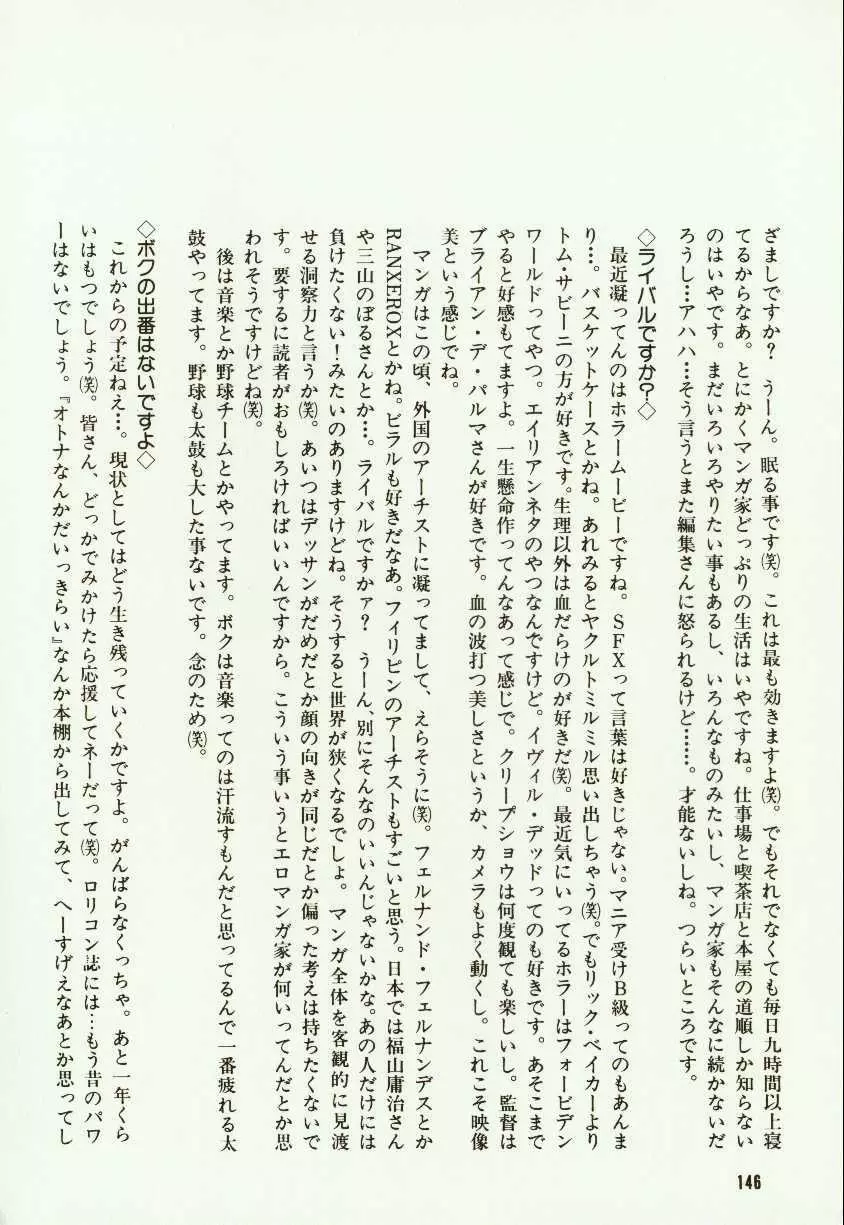 ざましですか? うーん。眠る事です(笑)。これは最も効きますよ(笑)。でもそれでなくても毎日九時間以上寝
てるからなあ。とにかくマンガ家どっぷりの生活はいやですね。仕事場と喫茶店と本屋の道順しか知らない
のはいやです。まだいろいろやりたい事もあるし、いろんなものみたいし、マンガ家もそんなに続かないだ
ろうし…アハハ…そう言うとまた編集さんに怒られるけど………。才能ないしね。つらいところです。
◇ライバルですか?◇
最近凝ってんのはホラームービーですね。SFXって言葉は好きじゃない。マニア受けB級ってのもあんま
り…。バスケットケースとかね。あれみるとヤクルトミルミル思い出しちゃう(笑)。でもリック・ベイカーより
トム・サビーニの方が好きです。生理以外は血だらけのが好きだ(笑)。最近気にいってるホラーはフォービデン
ワールドってやつ。エイリアンネタのやつなんですけど。イヴィル・デッドってのも好きです。あそこまで
やると好感もてますよ。一生懸命作ってんなあって感じで。クリープショウは何度観ても楽しいし。監督は
ブライアン・デ・パルマさんが好きです。血の波打つ美しさというか、カメラもよく動くし。これこそ映像
美という感じでね。
マンガはこの頃、外国のアーチストに凝ってまして、えらそうに(笑)。フェルナンド・フェルナンデスとか
RANXEROXとかね。ビラルも好きだなあ。フィリピンのアーチストもすごいと思う。日本では福山庸治さん
や三山のぼるさんとか…。ライバルですかァ? うーん、別にそんなのいいんじゃないかな。あの人だけには
負けたくない!みたいのありますけどね。そうすると世界が狭くなるでしょ。マンガ全体を客観的に見渡
せる洞察力と言うか(笑)。あいつはデッサンがだめだとか顔の向きが同じだとか偏った考えは持ちたくないで
す。要するに読者がおもしろければいいんですから。こういう事いうとエロマンガ家が何いってんだとか思
われそうですけどね(笑)。
後は音楽とか野球チームとかやってます。ボクは音楽ってのは汗流すもんだと思ってるんで一番疲れる太
鼓やってます。野球も太鼓も大した事ないです。念のため(笑)。
◇ボクの出番はないですよ◇
これからの予定ねえ…。現状としてはどう生き残っていくかですよ。がんばらなくっちゃ。あと一年くら
いはもつでしょう(笑)。皆さん、どっかでみかけたら応援してネーだって(笑)。ロリコン誌には…もう昔のパワ
ーはないでしょう。『オトナなんかだいっきらい』なんか本棚から出してみて、へーすげえなあとか思ってし
146